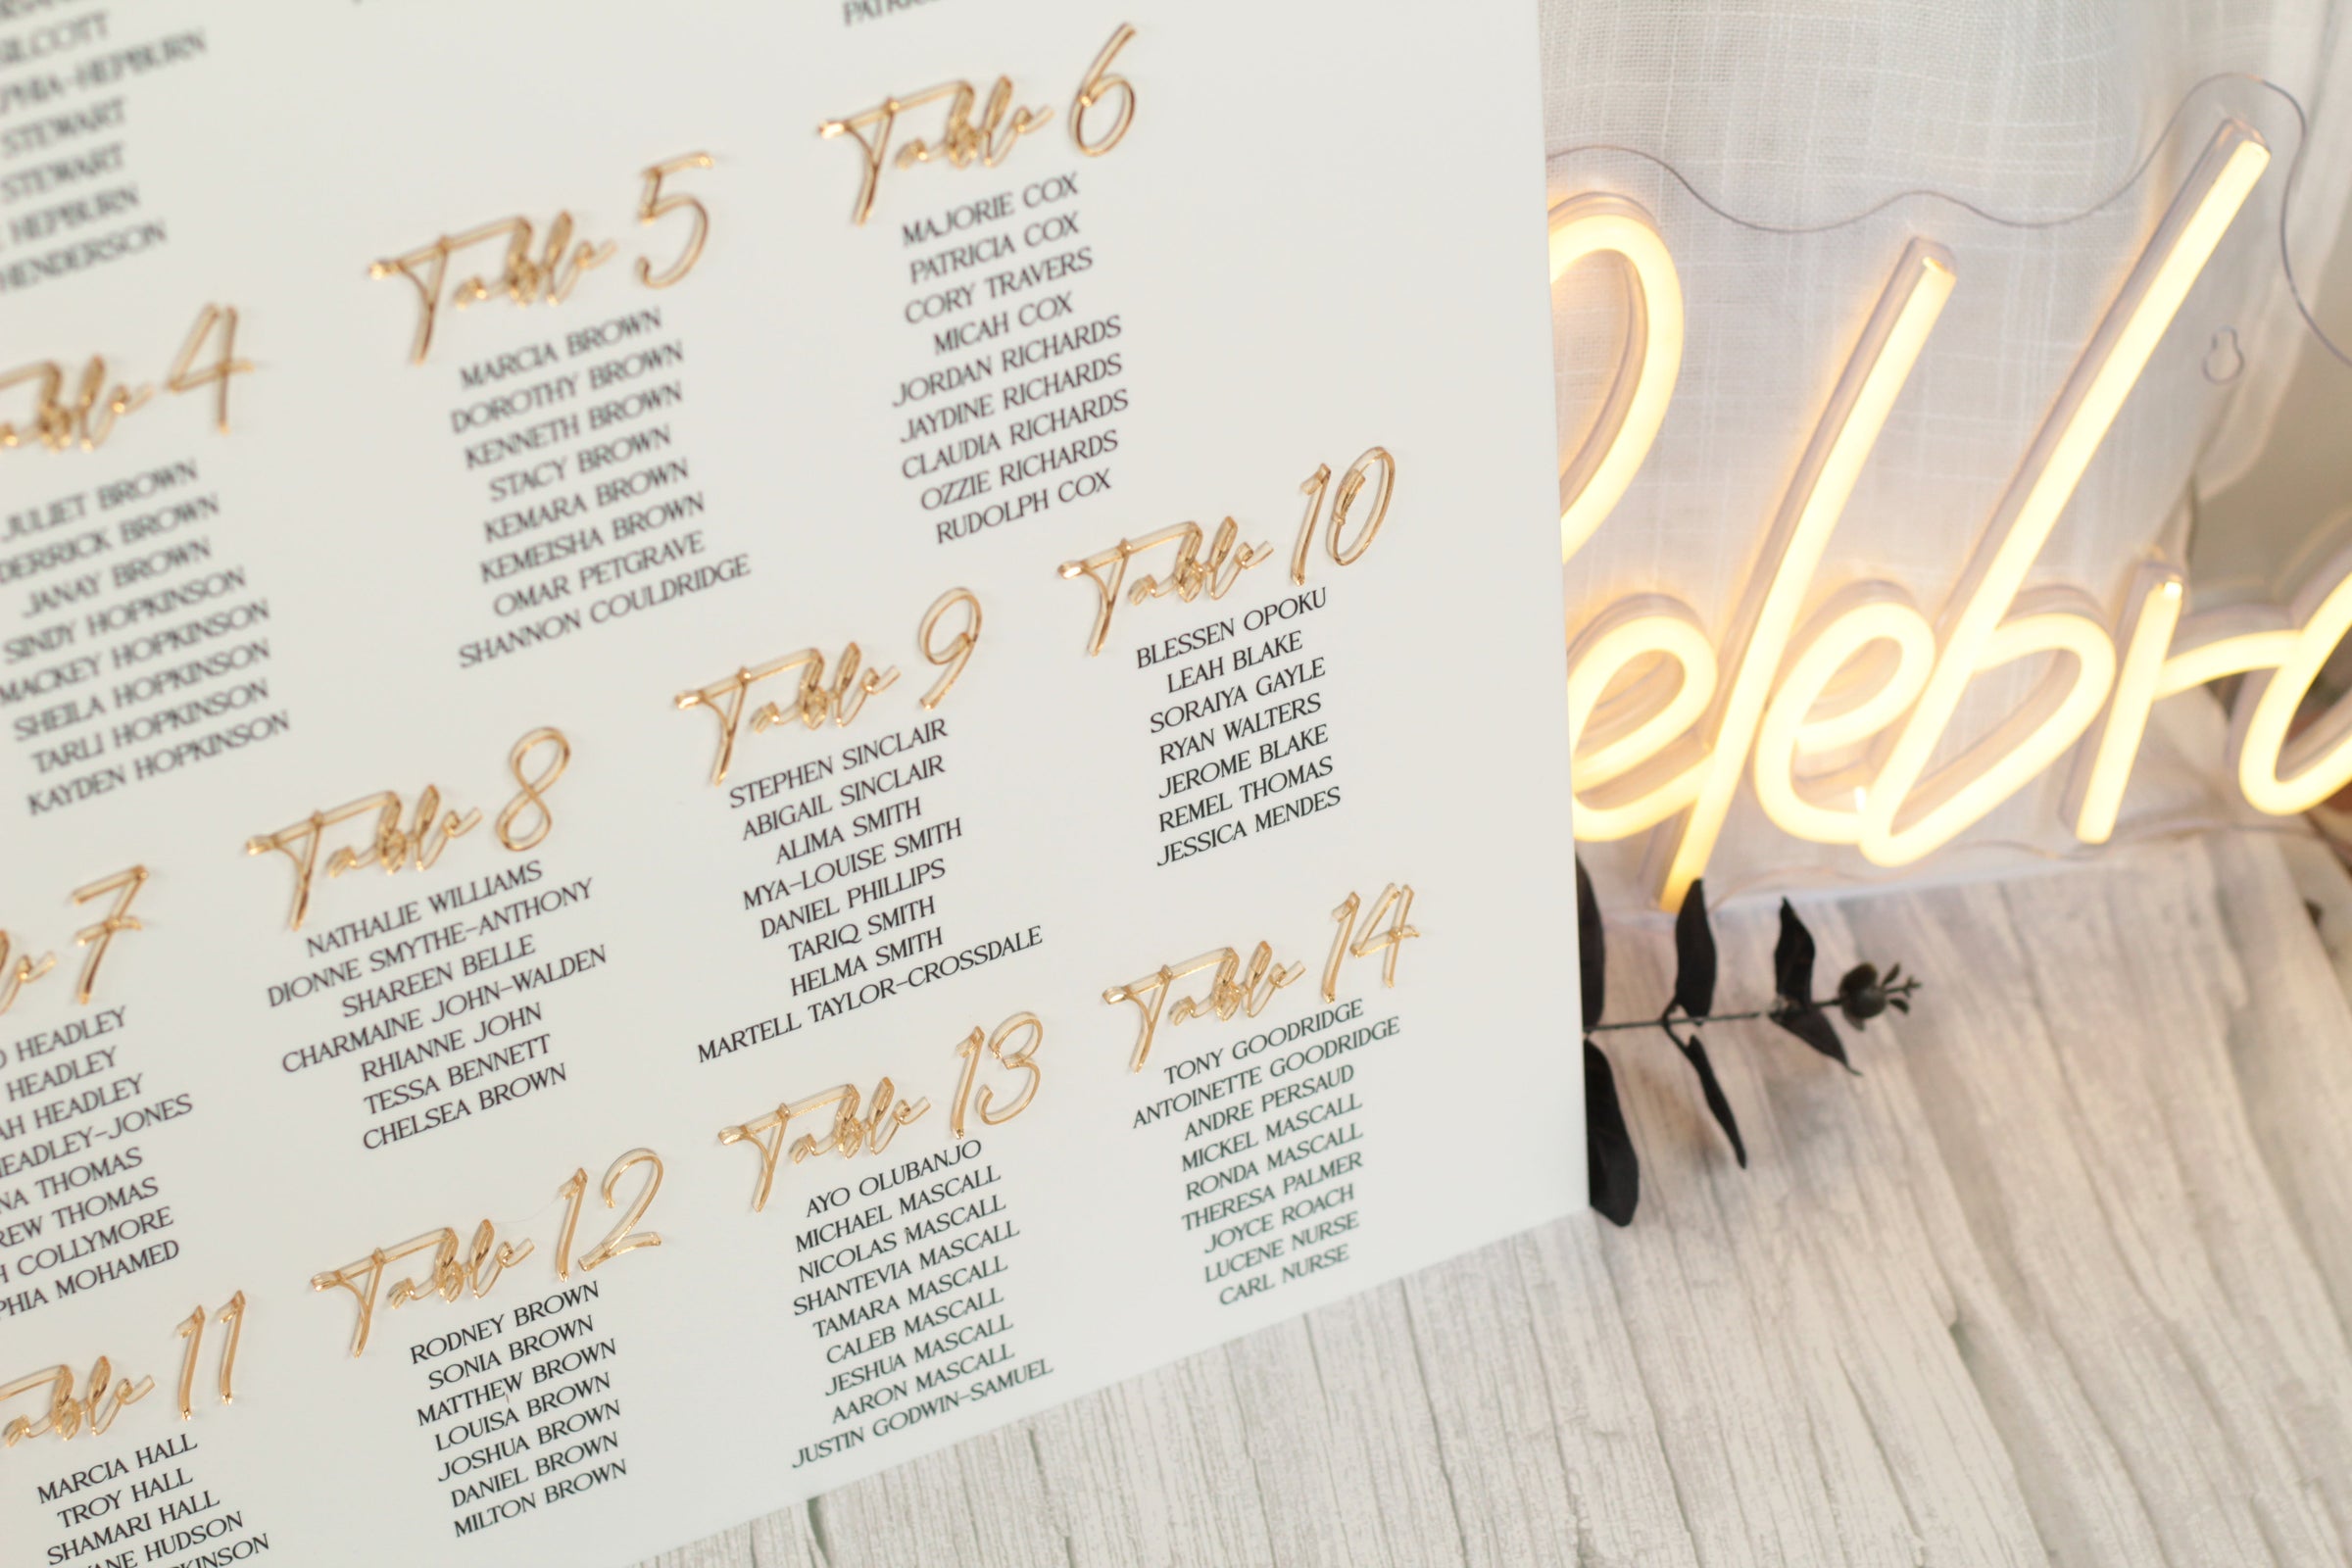 HEPBURN
STEWART
STEWART
HEPBURN
HENDERSON
4
JULIET BROWN
DERRICK BROWN
JANAY BROWN
SINDY HOPKINSON
MACKEY HOPKINSON
SHEILA HOPKINSON
TARLI HOPKINSON
KAYDEN HOPKINSON
Table 5
MARCIA BROWN
DOROTHY BROWN
KENNETH BROWN
STACY BROWN
KEMARA BROWN
KEMEISHA BROWN
OMAR PETGRAVE
SHANNON COULDRIDGE
Table 6
MAJORIE COX
PATRICIA COX
CORY TRAVERS
MICAH COX
JORDAN RICHARDS
JAYDINE RICHARDS
CLAUDIA RICHARDS
OZZIE RICHARDS
RUDOLPH COX
7
HEADLEY
HEADLEY
HEADLEY
HEADLEY-JONES
THOMAS
THOMAS
COLLYMORE
MOHAMED
Table 8
NATHALIE WILLIAMS
DIONNE SMYTHE-ANTHONY
SHAREEN BELLE
CHARMAINE JOHN-WALDEN
RHIANNE JOHN
TESSA BENNETT
CHELSEA BROWN
Table 9
STEPHEN SINCLAIR
ABIGAIL SINCLAIR
ALIMA SMITH
MYA-LOUISE SMITH
DANIEL PHILLIPS
TARIQ SMITH
HELMA SMITH
MARTELL TAYLOR-CROSSDALE
Table 10
BLESSEN OPOKU
LEAH BLAKE
SORAIYA GAYLE
RYAN WALTERS
JEROME BLAKE
REMEL THOMAS
JESSICA MENDES
11
MARCIA HALL
TROY HALL
SHAMARI HALL
HUDSON
Table 12
RODNEY BROWN
SONIA BROWN
MATTHEW BROWN
LOUISA BROWN
JOSHUA BROWN
DANIEL BROWN
MILTON BROWN
Table 13
AYO OLUBANJO
MICHAEL MASCALL
NICOLAS MASCALL
SHANTEVIA MASCALL
TAMARA MASCALL
CALEB MASCALL
JESHUA MASCALL
AARON MASCALL
JUSTIN GODWIN-SAMUEL
Table 14
TONY GOODRIDGE
ANTOINETTE GOODRIDGE
ANDRE PERSAUD
MICKEL MASCALL
RONDA MASCALL
THERESA PALMER
JOYCE ROACH
LUCENE NURSE
CARL NURSE
elebra